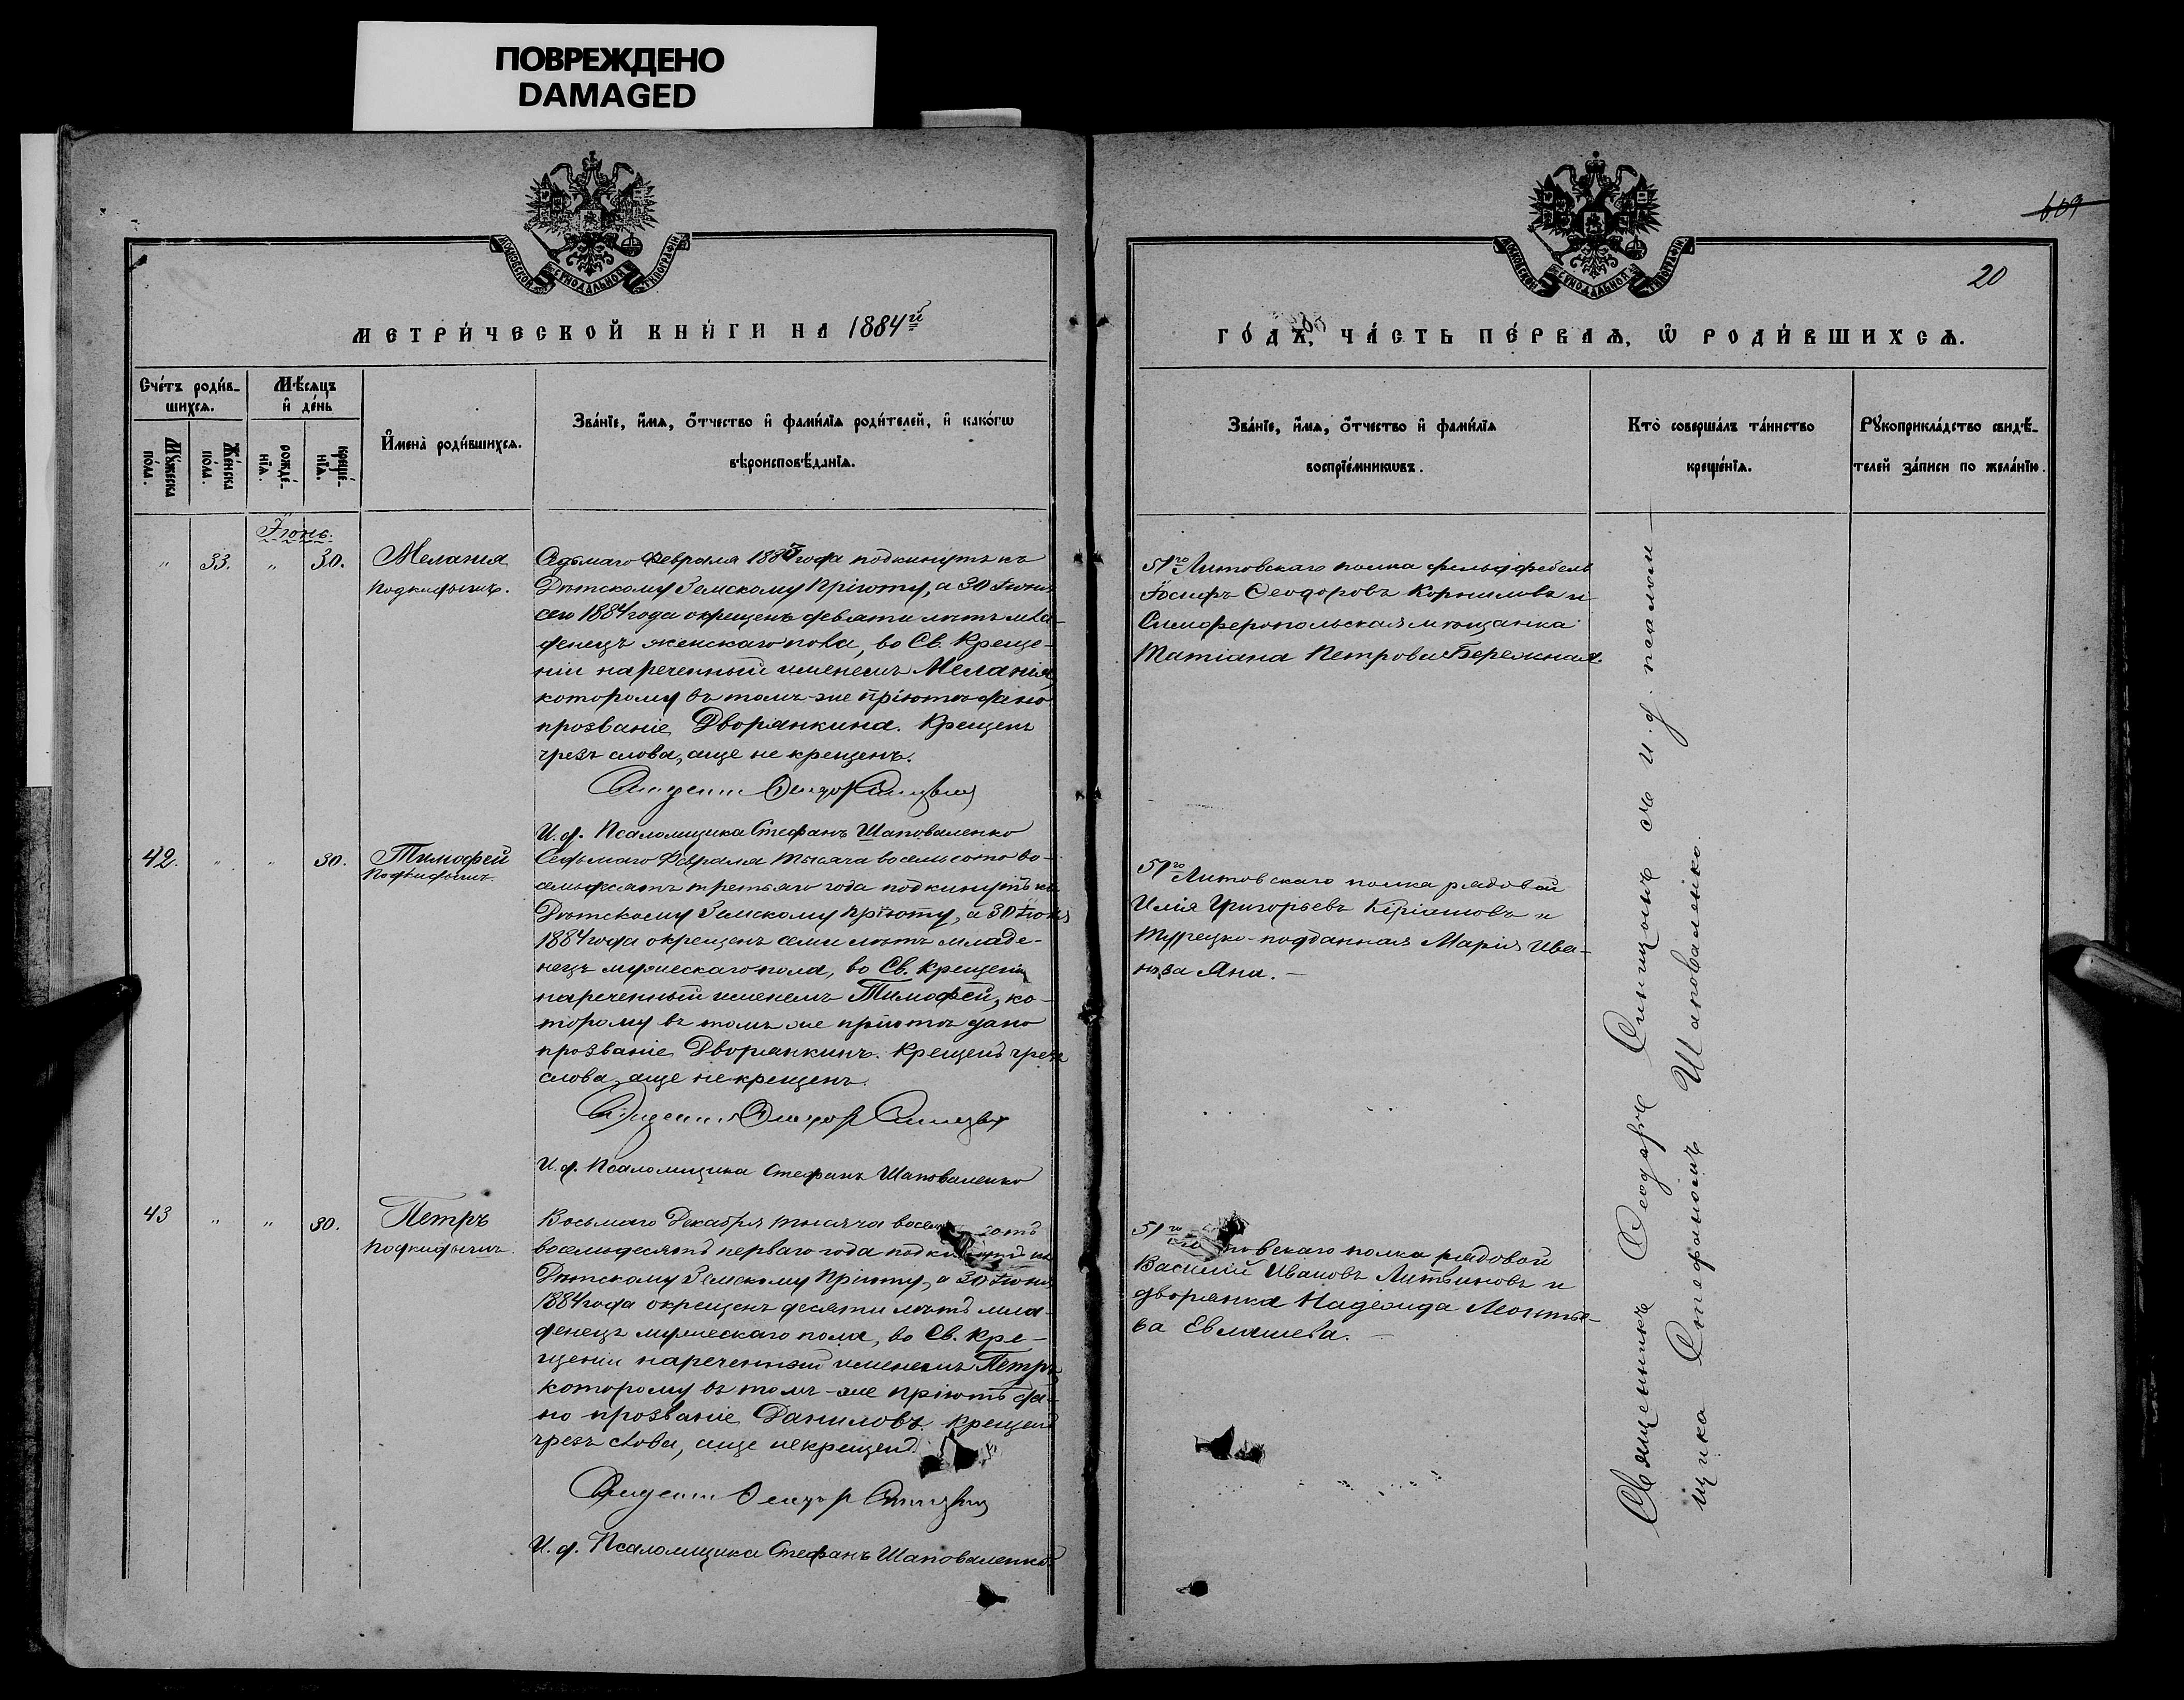 ПОВРЕЖДЕНО
DAMAGED
609
20
МОСКОВСКОЙ СѴНОДАЛЬНОЙ ТИПОГРАФІИ
МОСКОВСКОЙ СѴНОДАЛЬНОЙ ТИПОГРАФІИ
МЕТРИ́ЧЕСКОЙ КНИ́ГИ НА 1884й
ГО́ДЪ, ЧА́СТЬ ПЕ́РВАѦ, Ѡ РОДИ́ВШИХСѦ.
Сче́тъ роди́в-
шихсѧ.
Мѣ́сѧцъ
и҆ де́нь
Мꙋ́жеска
по́ла.
Же́нска
по́ла.
рожде́-
нїѧ.
креще́-
нїѧ.
И҆мена̀ роди́вшихсѧ.
Зва́нїе, и҆́мѧ, ѻ҆́тчество и҆ фами́лїѧ роди́телей, и҆ како́гѡ
вѣроисповѣ́данїѧ.
Зва́нїе, и҆́мѧ, ѻ҆́тчество и҆ фами́лїѧ
воспрїе́мникѡвъ.
Кто̀ соверша́лъ та́инство
креще́нїѧ.
Рꙋкоприкла́дство свидѣ́-
телей за́писи по жела́нїю.
Іюнь.
" 33. " 30.
Мелания
подкидышъ.
Седьмаго Февраля 1883 года подкинутъ къ
Дѣтскому Земскому Пріюту, а 30 Іюня
сего 1884 года окрещенъ девяти лѣтъ мла-
денецъ женскаго пола, во Св. Креще-
ніи нареченный именемъ Меланія,
которому въ томъ-же пріютѣ дано
прозваніе Дворянкина. Крещенъ
чрезъ слова, аще не крещенъ.
Священникъ Ѳеодоръ
И. д. Псаломщика Стефанъ Шаповаленко
51го Литовскаго полка фельдфебель
Іосифъ Ѳеодоровъ Корниловъ и
Симферопольская мѣщанка
Татіана Петрова Бережная.
42. " " 30.
Тимофей
Подкидышъ.
Седьмаго Февраля тысяча восемьсотъ во-
семьдесятъ третьяго года подкинутъ къ
Дѣтскому Земскому Пріюту, а 30 Іюня
1884 года окрещенъ семи лѣтъ младе-
нецъ мужескаго пола, во Св. Крещеніи
нареченный именемъ Тимофей, ко-
торому въ томъ же пріютѣ дано
прозваніе Дворянкинъ. Крещенъ чрезъ
слова, аще не крещенъ.
Священникъ Ѳеодоръ
И. д. Псаломщика Стефанъ Шаповаленко
51го Литовскаго полка рядовой
Илія Григорьевъ и
Турецко-подданная Марія Ива-
нова Яни. —
43 " " 30.
Петръ
Подкидышъ.
Восьмаго Декабря тысяча восемьсотъ
восемьдесятъ перваго года подкинутъ къ
Дѣтскому Земскому Пріюту, а 30 Іюня
1884 года окрещенъ десяти лѣтъ мла-
денецъ мужескаго пола, во Св. Кре-
щеніи нареченный именемъ Петръ,
которому въ томъ-же пріютѣ да-
но прозваніе Даниловъ. Крещенъ
чрезъ слова, аще не крещенъ.
Священникъ Ѳеодоръ
И. д. Псаломщика Стефанъ Шаповаленко
51го Литовскаго полка рядовой
Василій Ивановъ Литвиновъ и
дворянка Надежда Леонтье-
ва Евлашева. —
Священникъ Ѳеодоръ съ и. д. псалом-
щика Стефаномъ Шаповаленко.